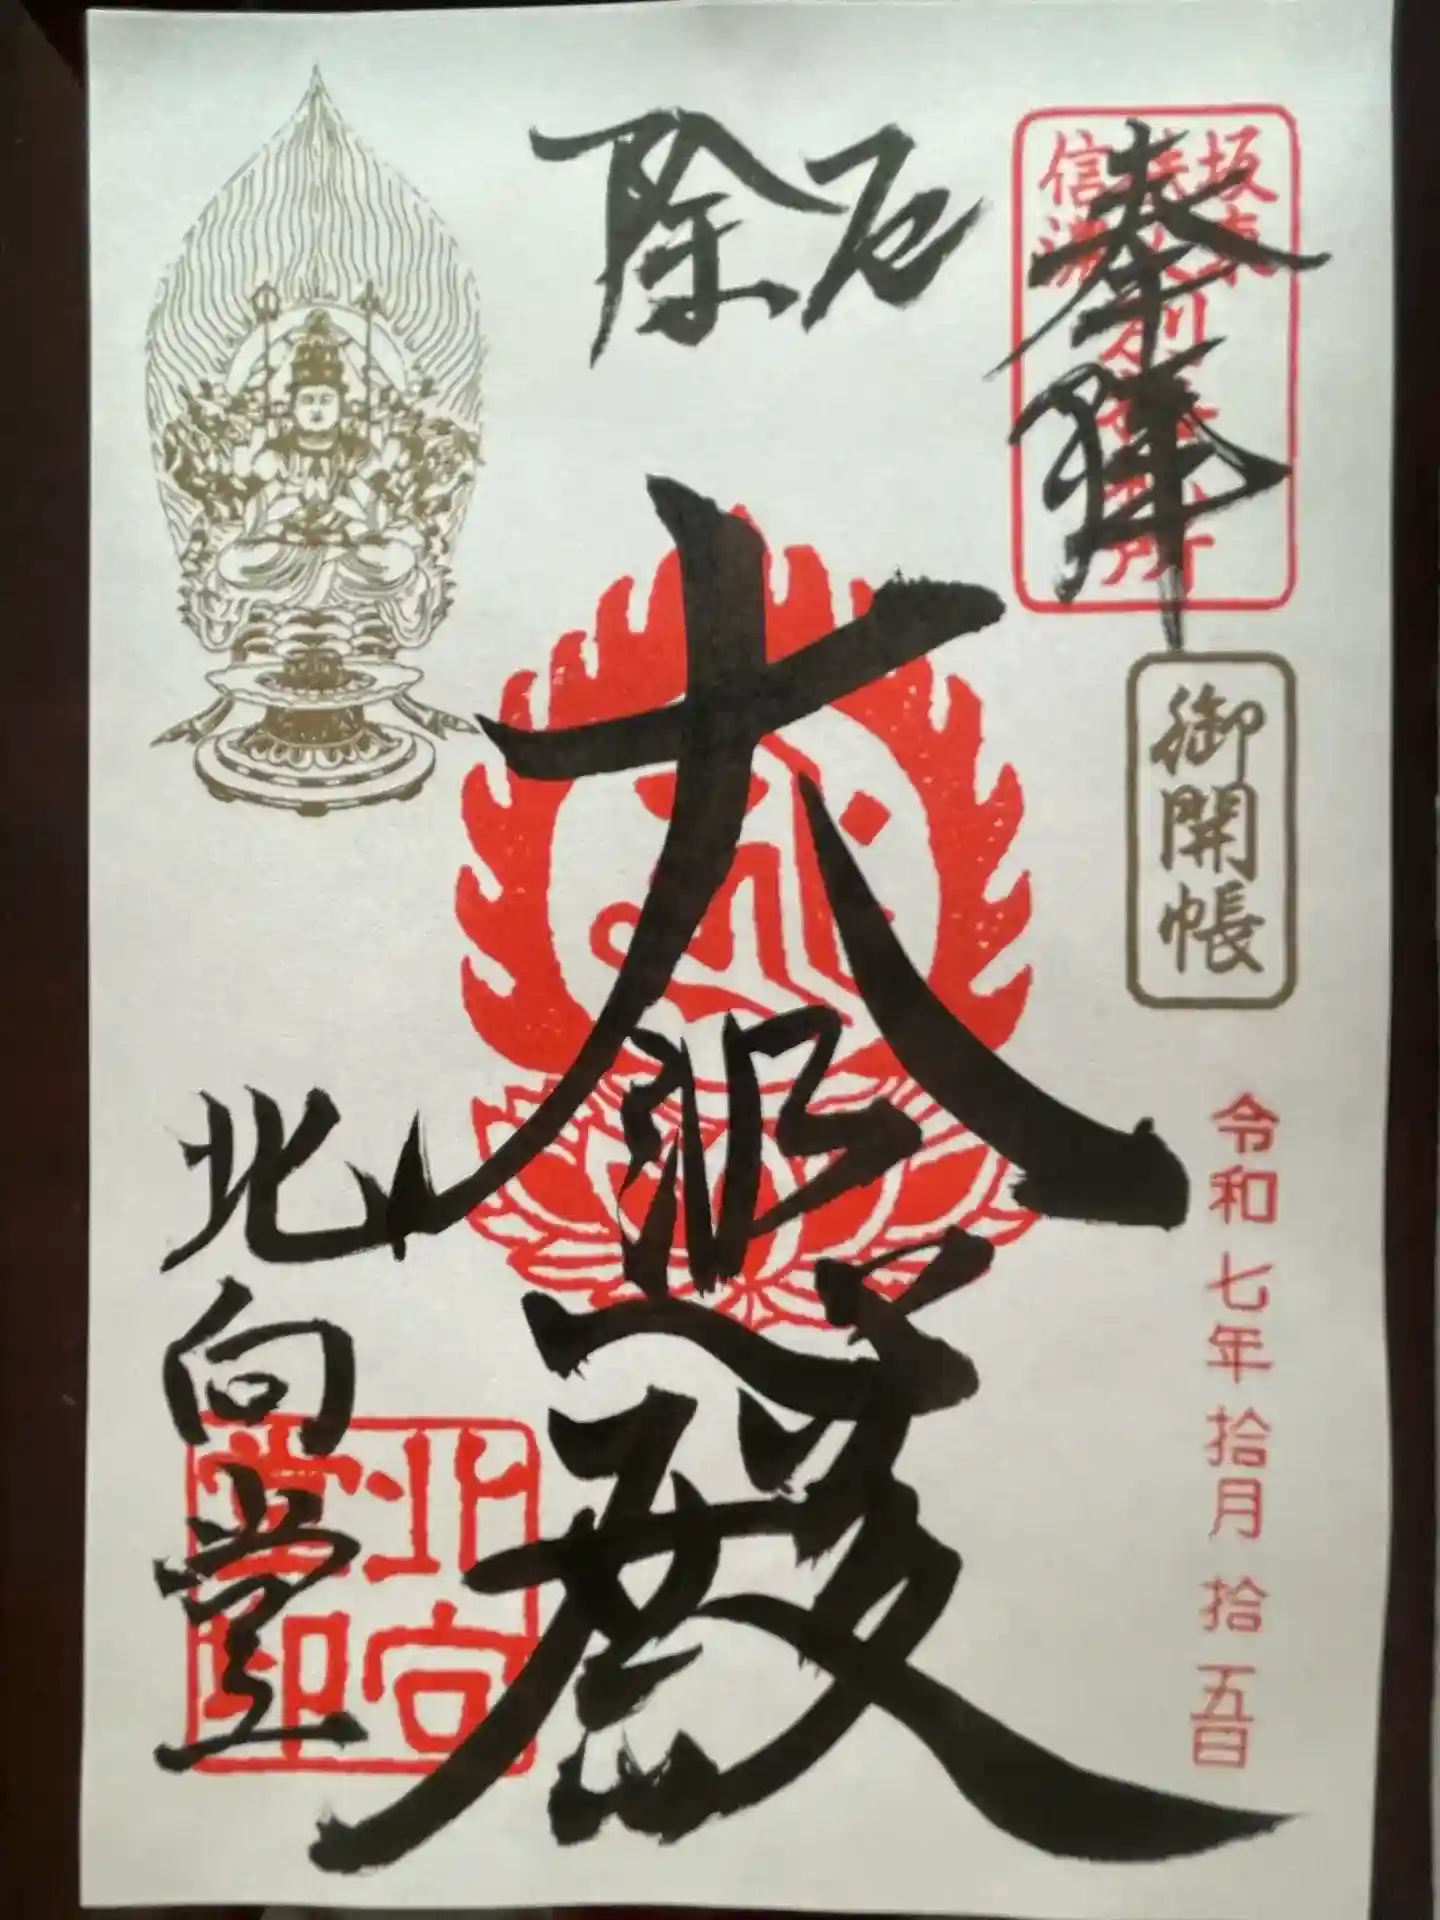 奉拝
坂東
信濃
御開帳
令和七年拾月拾五日
厄除
大悲殿
北向堂
北向堂印